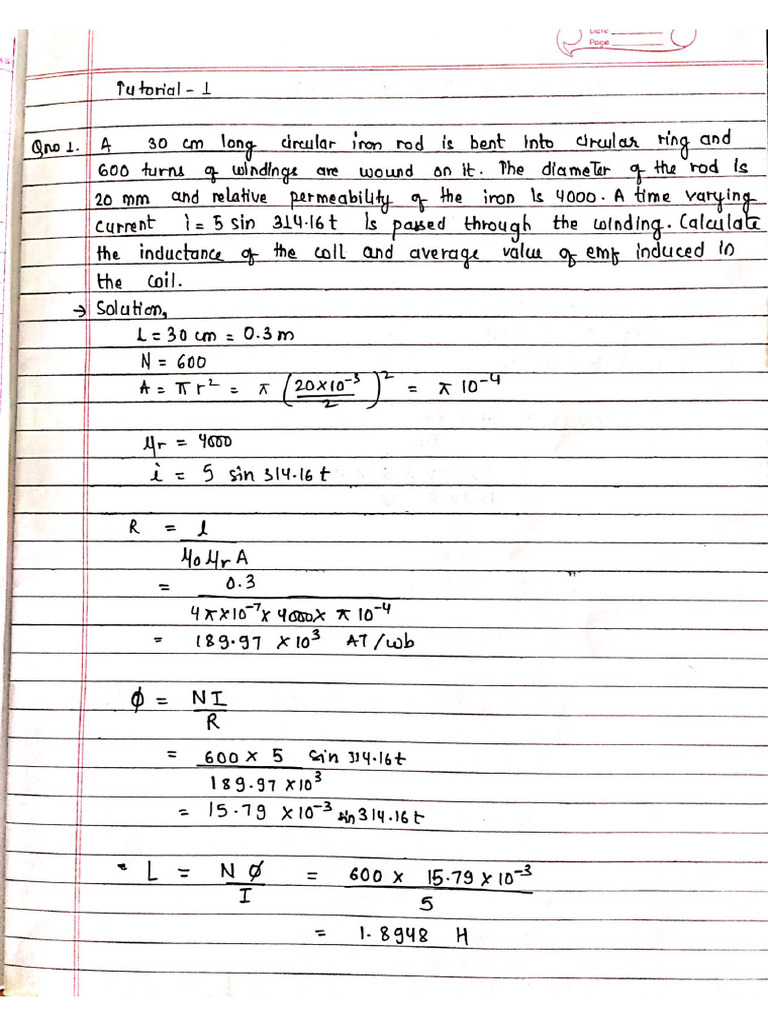 Date
Page
Tutorial - 1
Qno 1. A 30 cm long circular iron rod is bent into circular ring and
600 turns of windings are wound on it. The diameter of the rod is
20 mm and relative permeability of the iron is 4000. A time varying
current i = 5 sin 314.16 t is passed through the winding. Calculate
the inductance of the coil and average value of emf induced in
the coil.
→ Solution,
L = 30 cm = 0.3 m
N = 600
A = π r² = π (20×10⁻³/2)² = π 10⁻⁴
μr = 4000
i = 5 sin 314.16 t
R = l
μ0 μr A
= 0.3
4π×10⁻⁷ × 4000 × π 10⁻⁴
= 189.97 × 10³ AT/wb
ϕ = NI
R
= 600 × 5 sin 314.16t
189.97 × 10³
= 15.79 × 10⁻³ sin 314.16t
• L = Nϕ = 600 × 15.79 × 10⁻³
I 5
= 1.8948 H